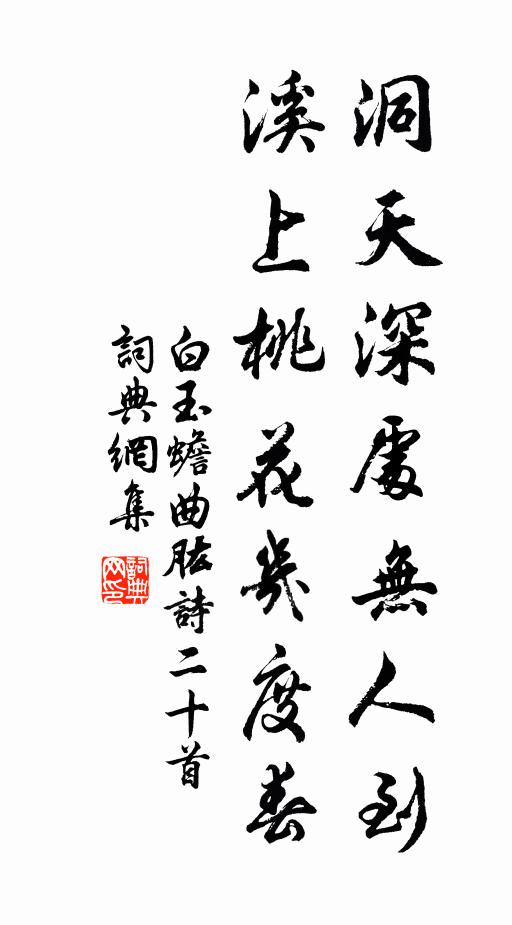 洞天深處無人到
溪上桃花幾度春
白玉蟾曲肱詩二十首
詞典網集
詞典網印